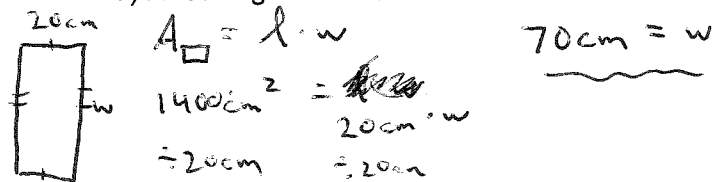 20cm
A□ = l · w
70cm = w
w
1400cm² =
20cm · w
÷20cm ÷20cm